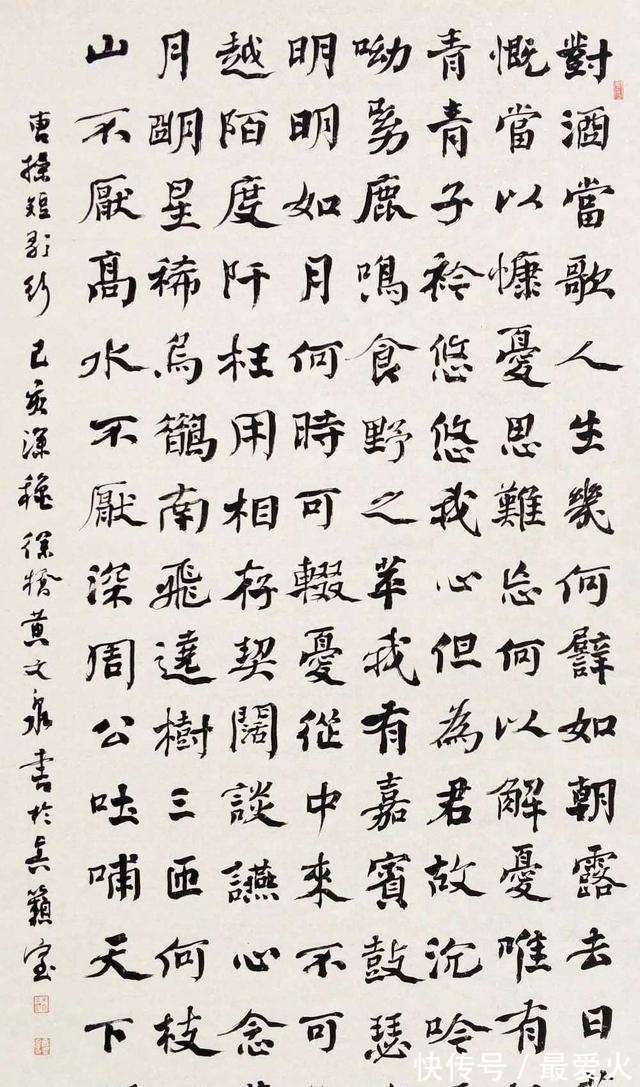 對酒當歌人生幾何譬如朝露去日
慨當以慷憂思難忘何以解憂唯有
青青子衿悠悠我心但為君故沉吟
呦呦鹿鳴食野之苹我有嘉賓鼓瑟
明明如月何時可輟憂從中來不可
越陌度阡枉用相存契闊談讌心念
月明星稀烏鵲南飛遶樹三匝何枝
山不厭高水不厭深周公吐哺天下
曹操短歌行 己亥深穐 徐 黃文泉書於 籟室
快传号/最爱火